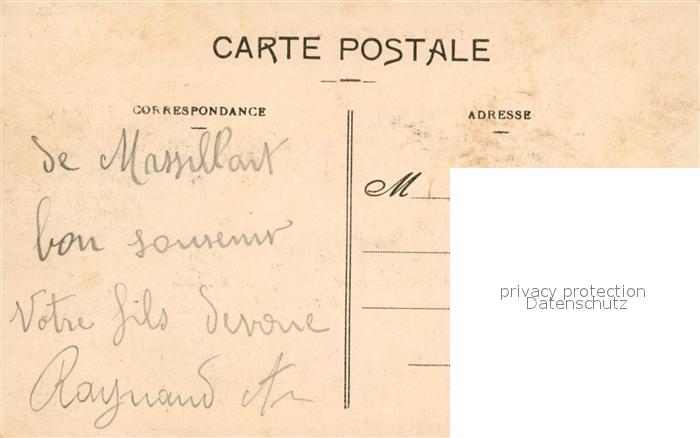 CARTE POSTALE
CORRESPONDANCE
ADRESSE
de Massillart
bon souvenir
Votre fils devoué
Raynaud
M
privacy protection
Datenschutz